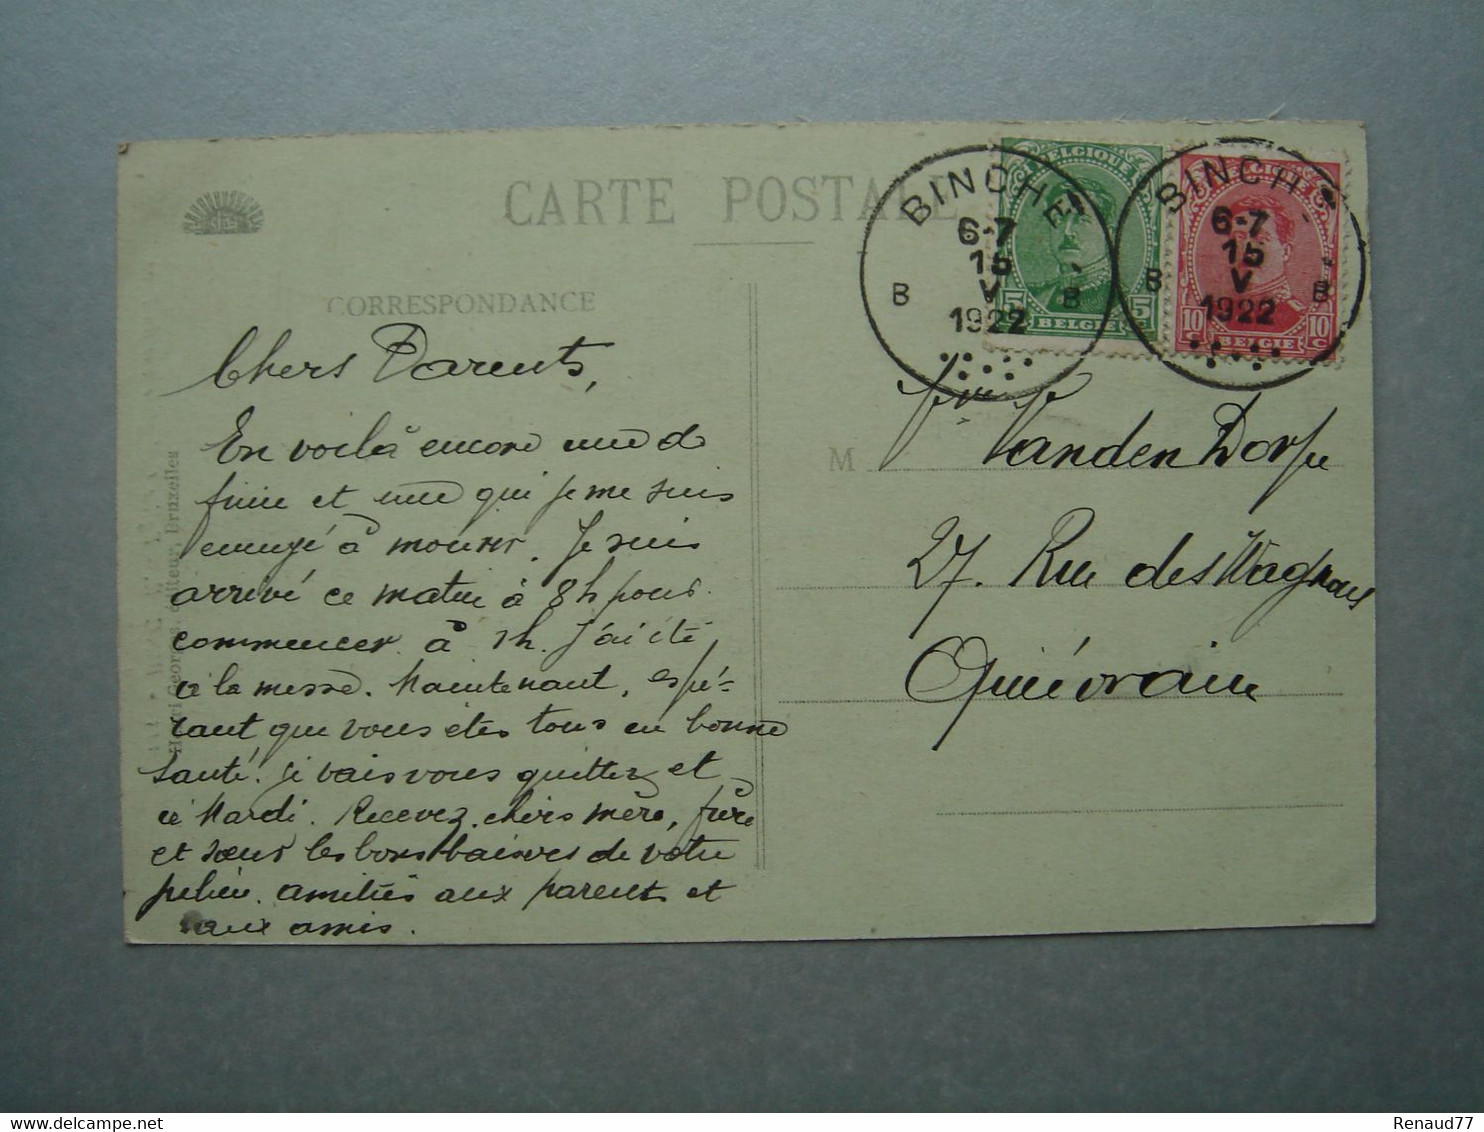 CARTE POSTALE
CORRESPONDANCE
Chers Parents,
En voilà encore une d
finie et une qui je me suis
à mourir. Je suis
arrivé ce matin à 8h pour
commencer à 9h. J'ai été
à la messe. Maintenant, espé-
rant que vous êtes tous en bonne
santé. je vais vous quitter et
ce Mardi. Recevez chers mère, frère
et sœur les bons baisers de votre
amitiés aux parents et
aux amis.
Henri Georges, éditeur, Bruxelles
BELGIQUE
5 5
BELGIE
BELGIQUE
10 C 10 C
BELGIE
BINCHE
6-7
15
V
1922
B B
BINCHE
6-7
15
V
1922
B B
M Vanden Dorpe
27. Rue des Wagnons
Quiévrain
delcampe.net
Renaud77